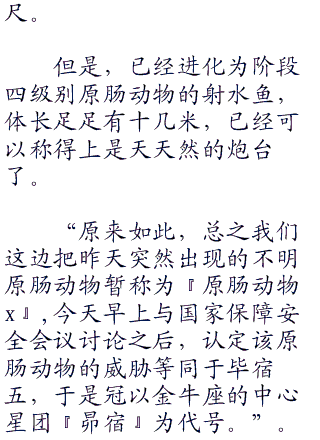 尺。
但是，已经进化为阶段
四级别原肠动物的射水鱼，
体长足足有十几米，已经可
以称得上是天天然的炮台
了。
“原来如此，总之我们
这边把昨天突然出现的不明
原肠动物暂称为『原肠动物
x』,今天早上与国家保障安
全会议讨论之后，认定该原
肠动物的威胁等同于毕宿
五，于是冠以金牛座的中心
星团『昴宿』为代号。”。